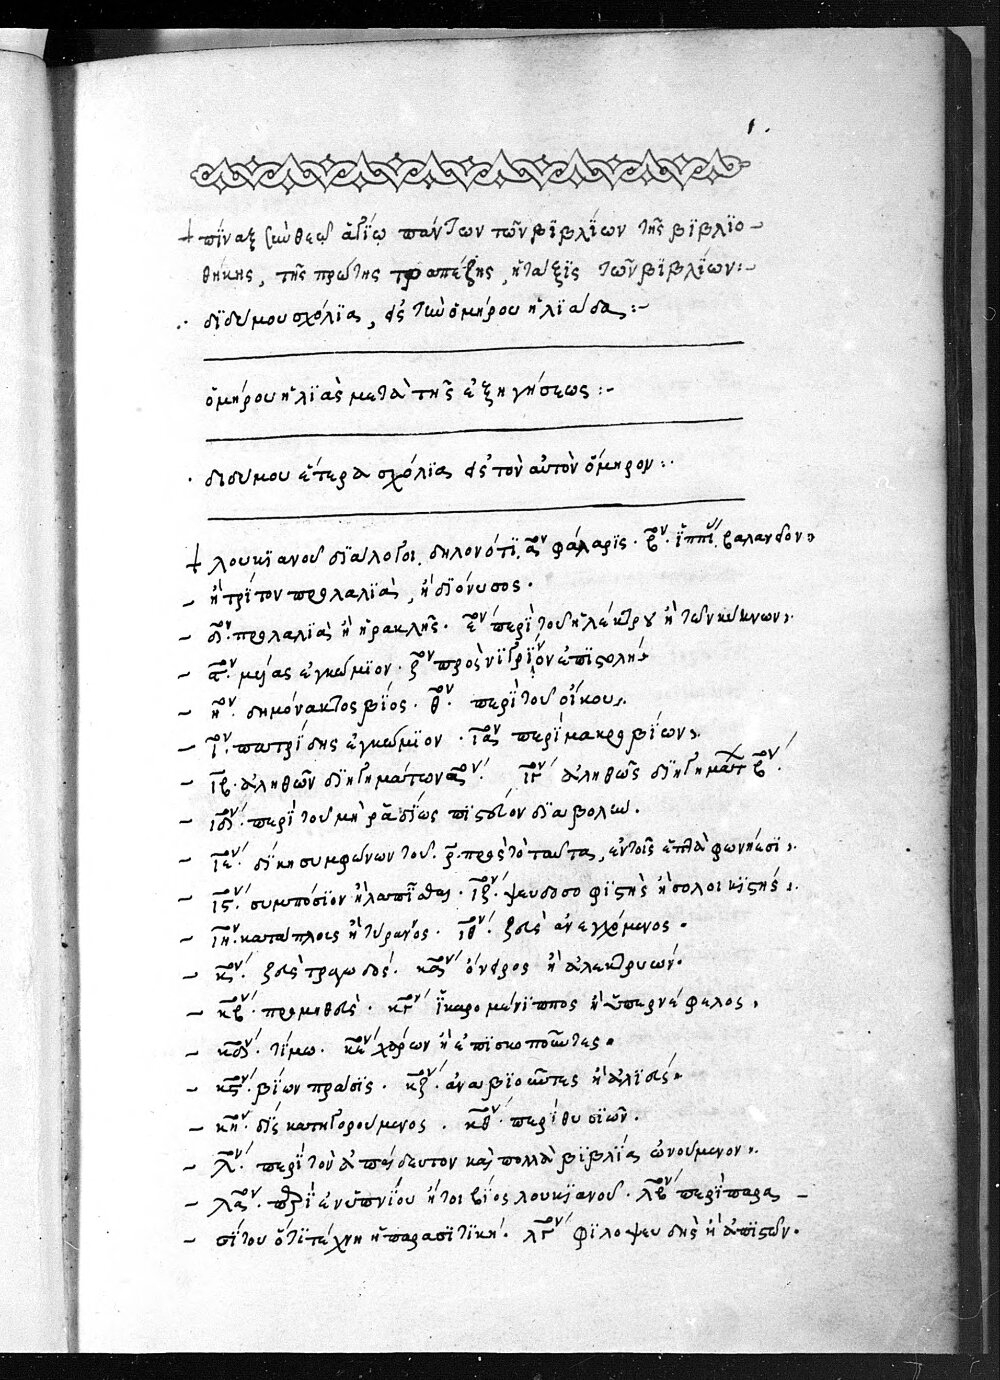 1.
+ πΐναξ σὺν θεῷ ἁγΐῳ πάντων τῶν βϊβλΐων τῆς βϊβλϊο-
θήκης, τῆς πρώτης τραπέζης, ἡ τάξϊς τῶν βϊβλΐων:-
διδύμου σχόλϊα, εἰς τὴν ὁμήρου ἠλϊάδα:-
ὁμήρου ἠλϊὰς μετὰ τῆς ἐξηγήσεως:-
διδύμου ἕτερα σχόλϊα εἰς τὸν αὐτὸν ὅμηρον:·
+ λουκϊανοῦ διάλογοι. δηλονότϊ. αον φάλαρϊς· βον. ἵππΐ βαλανεῖον,
- ἢ τρίτον προλαλϊὰ, ἢ διόνυσος·
- δον. προλαλϊὰ ἢ ἡρακλῆς· εον περὶ τοῦ ἠλέκτρου ἢ τῶν κύκνων,
- ϛον. μυίας ἐγκώμϊον· ζον πρὸς νϊγρῖνον ἐπϊστολὴ,
- ηον. δημόνακτος βΐος· θον. περὶ τοῦ οἴκου,
- ιον. πατρίδης ἐγκώμϊον· ιαον περὶ μακροβΐων,
- ιβ. ἀληθῶν διηγημάτων αον. ιγον ἀληθῶν διηγημάτ βον.
- ιδον. περὶ τοῦ μὴ ῥᾳδΐως πϊστεύειν διαβολῇ.
- ιεον. δίκη συμφώνων τοῦ. σ. πρὸς τὸ ταῦ τα, ἐν τοῖς ἑπτὰ φωνήεσϊ,
- ιϛον. συμπόσϊον ἢ λαπΐθαι· ιζον. ψευδοσοφϊστὴς ἢ σολοικϊστής,
- ιηον. κατάπλους ἢ τύραννος· ιθον. ζεὺς ἀνεγχόμενος·
- κον. ζεὺς τραγωδός. καον ὄνειρος ἢ ἀλεκτρυών.
- κβον. προμηθεὺς· κγον ἰκαρομένϊππος ἢ ὑπερνέφελος,
- κδον. τίμω. κεον χάρων ἢ ἐπϊσκοποῦντες.
- κϛον. βΐων πράσϊς. κζον. ἀναβϊοῦντες ἢ ἁλϊεύς,
- κηον. δὶς κατηγορούμενος. κθον. περὶ θυσϊῶν.
- λον. περὶ τὸν ἀπαίδευτον καὶ πολλὰ βϊβλΐα ὠνούμενον,
- λαον. περὶ ἐνυπνΐου ἤτοι βΐος λουκϊανοῦ. λβον περὶ παρα-
- σίτου ὅτϊ τέχνη ἡ παρασϊτϊκή. λγον φϊλοψευδὴς ἢ ἀπϊστῶν.